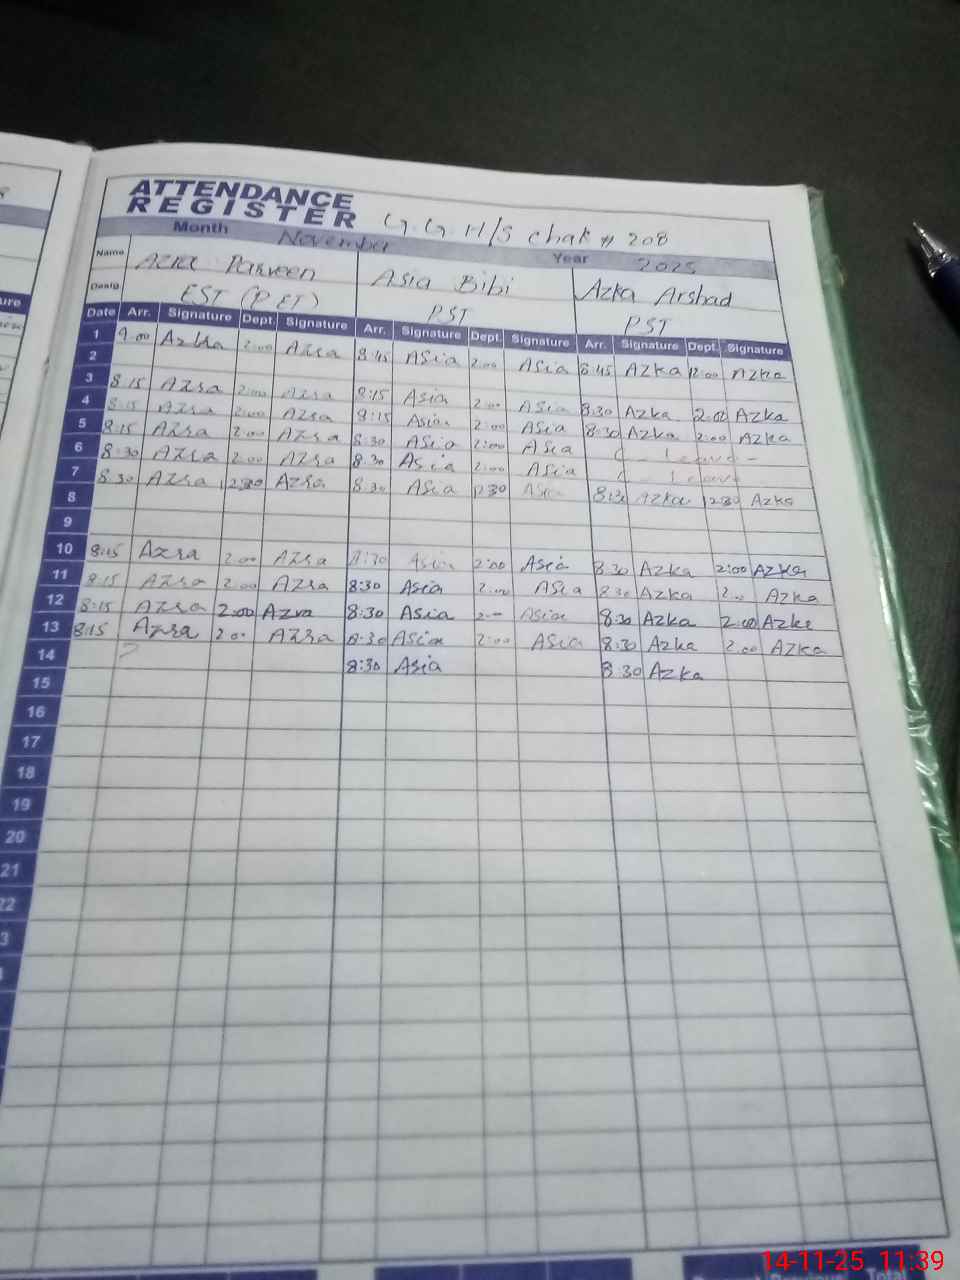 ATTENDANCE
REGISTER G.G.H/S chak # 208
Month November Year 2025
Name Azra Parveen Asia Bibi Azka Arshad
Desig. EST (P.ET) PST PST
Date Arr. Signature Dept. Signature Arr. Signature Dept. Signature Arr. Signature Dept. Signature
1 9.00 Azra 2:00 Azra 8:45 Asia 2:00 Asia 8:45 Azka 2:00 Azka
2
3 8:15 Azra 2:00 Azra 8:15 Asia 2:00 Asia 8:30 Azka 2:00 Azka
4 8:15 Azra 2:00 Azra 8:15 Asia 2:00 Asia 8:30 Azka 2:00 Azka
5 8:15 Azra 2:00 Azra 8:30 Asia 2:00 Asia Leave
6 8:30 Azra 2:00 Azra 8:30 Asia 2:00 Asia Leave
7 8:30 Azra 12:30 Azra 8:30 Asia 12:30 Asia 8:30 Azka 12:30 Azka
8
9
10 8:15 Azra 2:00 Azra 8:30 Asia 2:00 Asia 8:30 Azka 2:00 Azka
11 8:15 Azra 2:00 Azra 8:30 Asia 2:00 Asia 8:30 Azka 2:00 Azka
12 8:15 Azra 2:00 Azra 8:30 Asia 2:00 Asia 8:30 Azka 2:00 Azka
13 8:15 Azra 2:00 Azra 8:30 Asia 2:00 Asia 8:30 Azka 2:00 Azka
14 8:30 Asia 8:30 Azka
15
16
17
18
19
20
21
22
14-11-25 11:39